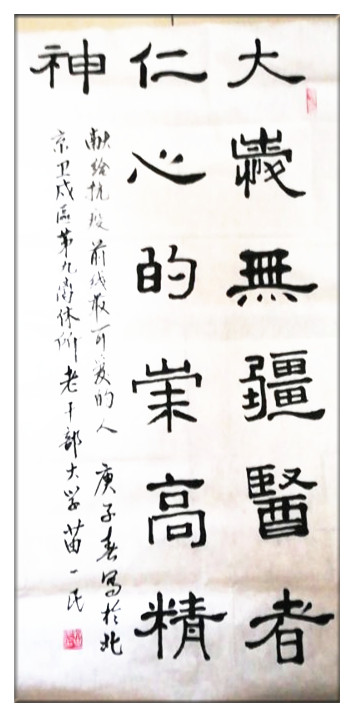 大歲無疆醫者
仁心的崇高精
神
献给抗疫前线最可爱的人 庚子春寫於北
京卫戍区第九离休所老干部大学苗一民